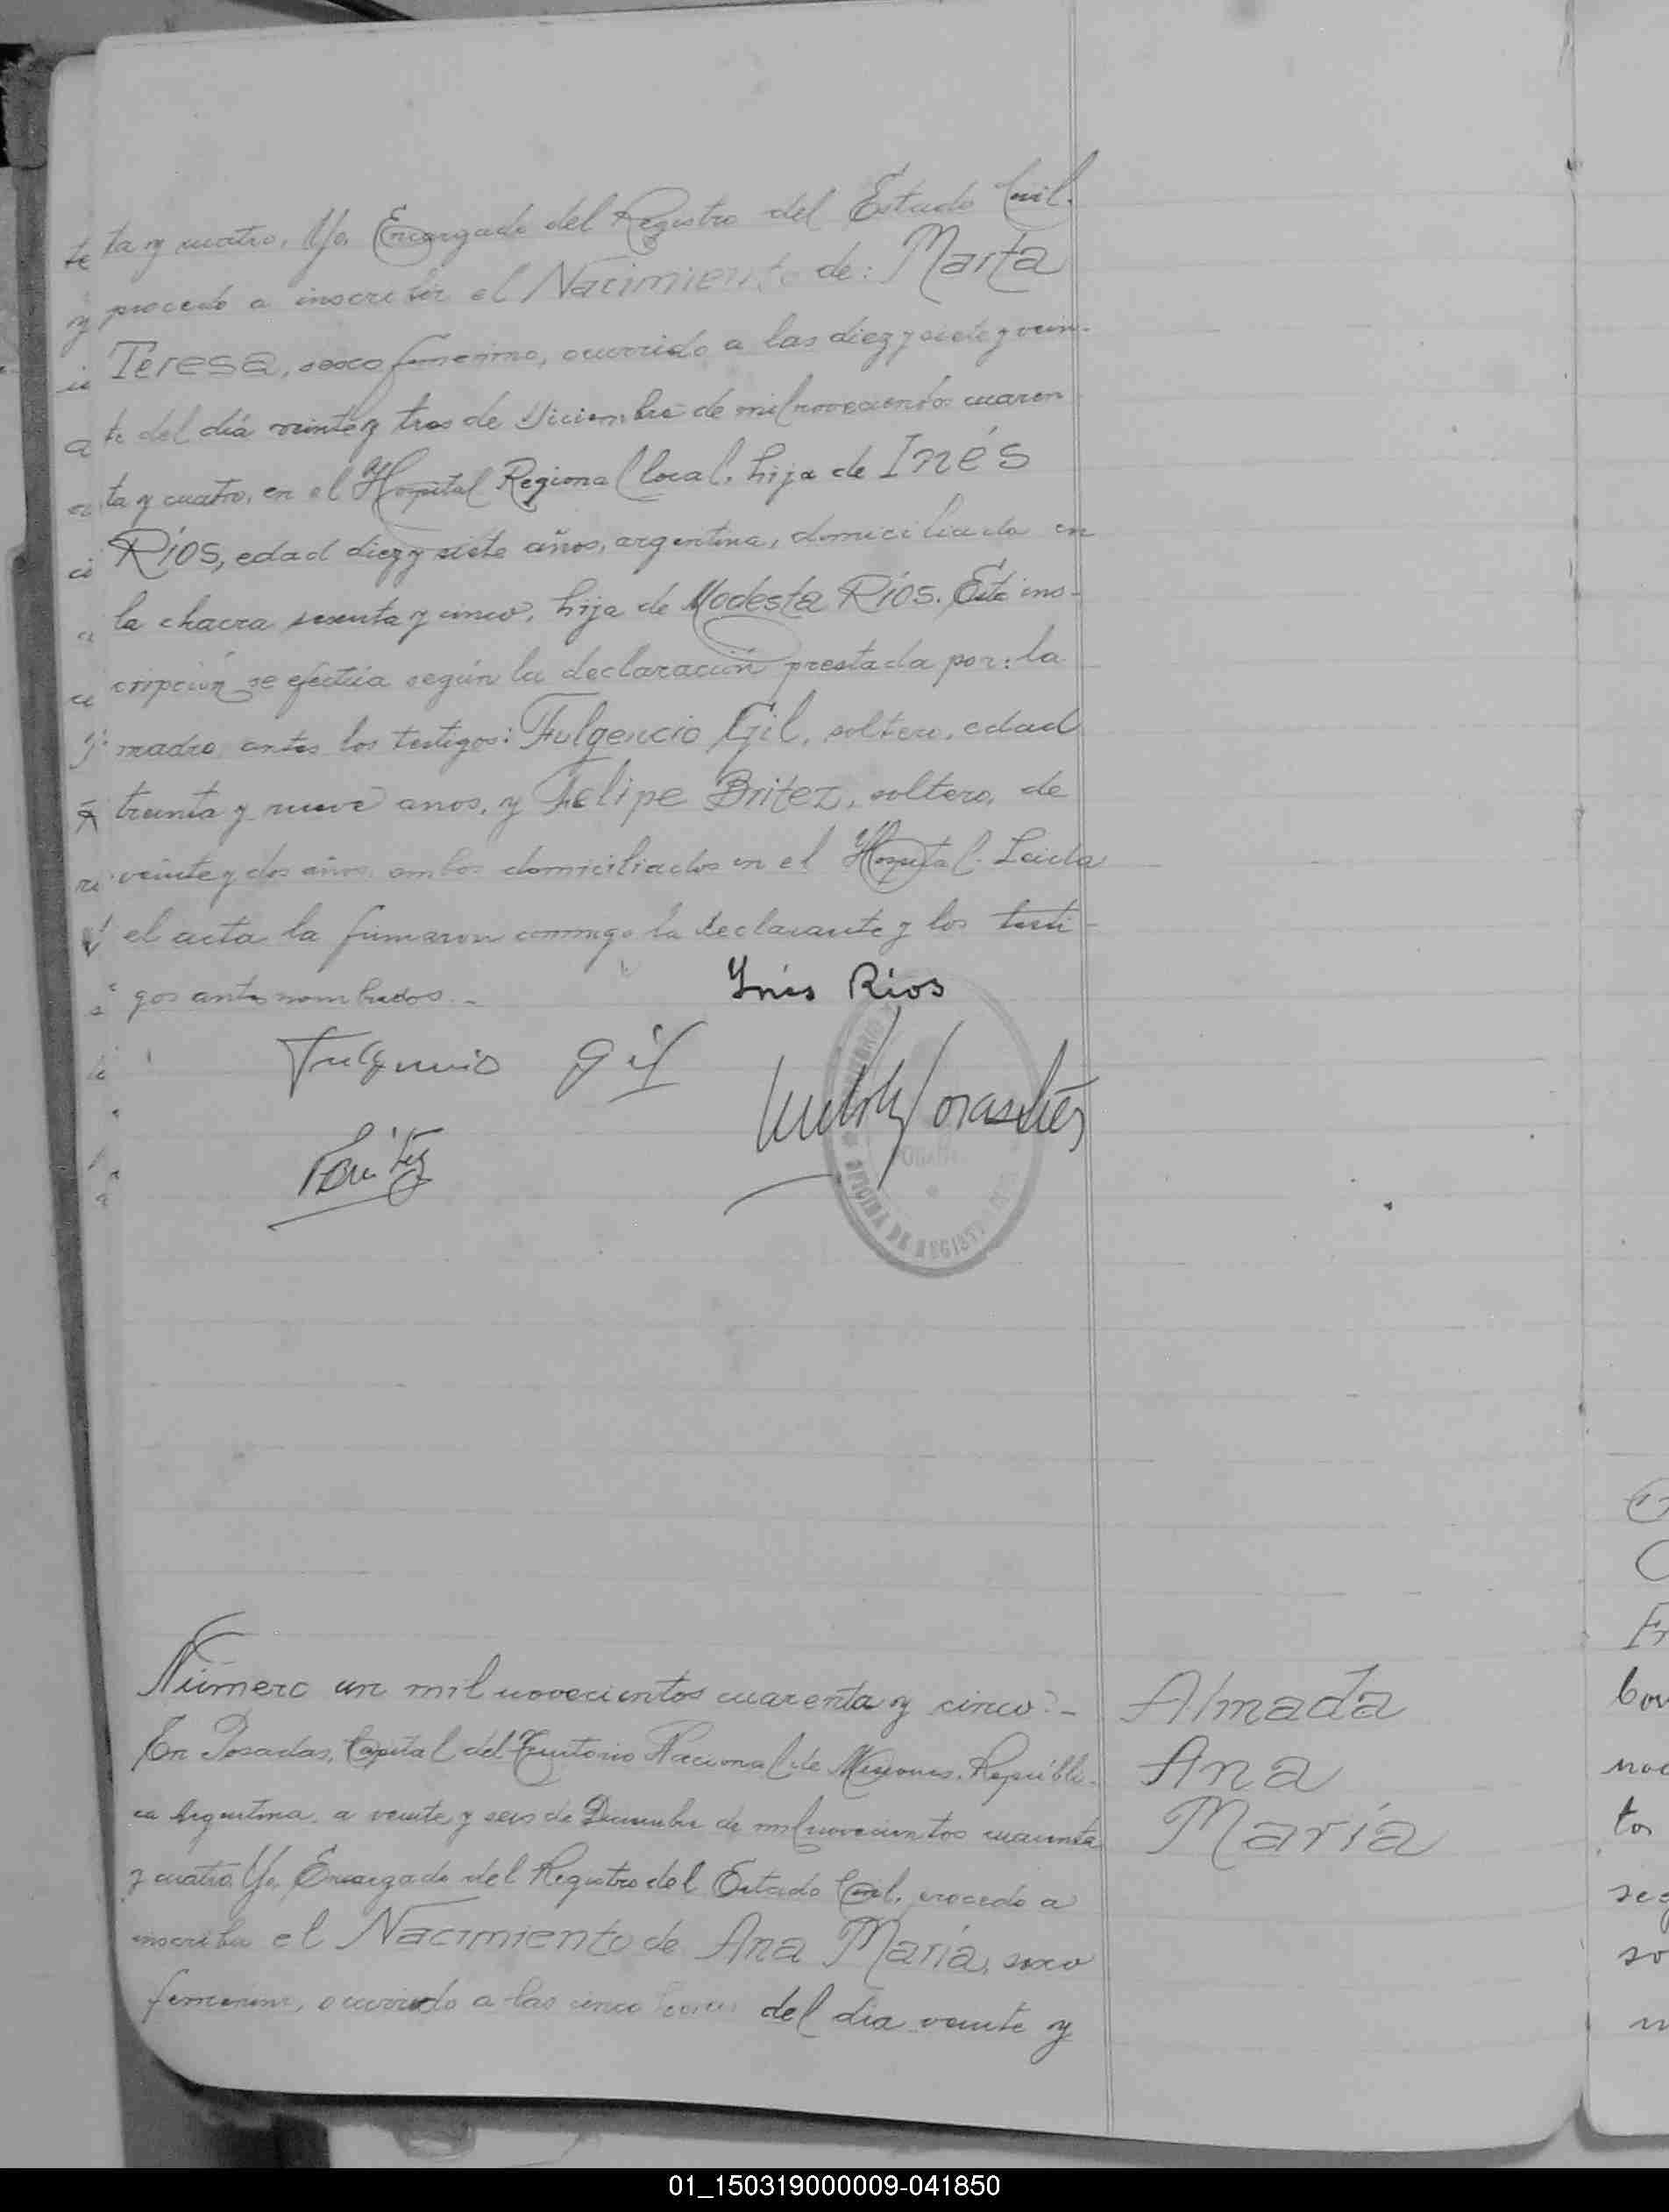 ta y cuatro, Yo, Encargado del Registro del Estado Civil.
procedo a inscribir el Nacimiento de: Marta
Teresa, sexo femenino, ocurrido a las diez y siete y vein-
te del día veinte y tres de Diciembre de mil novecientos cuaren
ta y cuatro, en el Hospital Regional local. hija de Inés
Ríos, edad diez y siete años, argentina, domiciliada en
la chacra sesenta y cinco, hija de Modesta Ríos. Esta ins-
cripción se efectúa según la declaración prestada por: la
madre, antes los testigos: Fulgencio Gil, soltero, edad
treinta y nueve anos, y Felipe Britez, soltero, de
veinte y dos años, ambos domiciliados en el Hospital. Leida
el acta la firmaron conmigo la declarante y los testi-
gos antes nombrados.-
Ynés Ríos
Fulgencio Gil
Britez
OFICINA DE REGISTRO
Número un mil novecientos cuarenta y cinco:-
Almada
En Posadas, Capital del Territorio Nacional de Misiones. Repúbli-
Ana
ca Argentina, a veinte y seis de Diciembre de mil novecientos cuarenta
María
y cuatro, Yo, Encargado del Registro del Estado Civil, procedo a
inscribir el Nacimiento de Ana María, sexo
femenino, ocurrido a las cinco horas del día veinte y
01_150319000009-041850